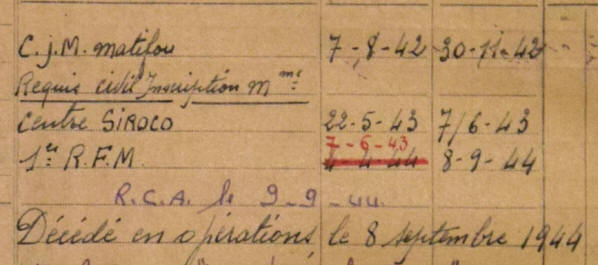 C.J.M. matifou 7-8-42 30-11-42
Requis civil Inscription Mme
Centre SIROCO 22-5-43 7/6-43
7-6-43
1er R.F.M. 4-4-44 8-9-44
R.C.A. le 9-9-44.
Décédé en opérations, le 8 septembre 1944